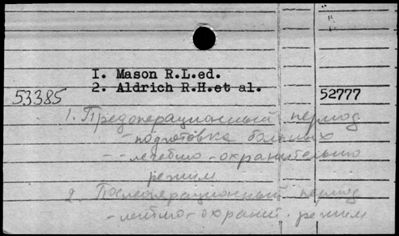 I. Mason R.L.ed.
2. Aldrich R.H.et al.
53385
52777
1. Предоперационный период
- подготовка больных
- - лечебно-охранительно
режим
2. Послеоперационный период
- лечебно-охранит. режим